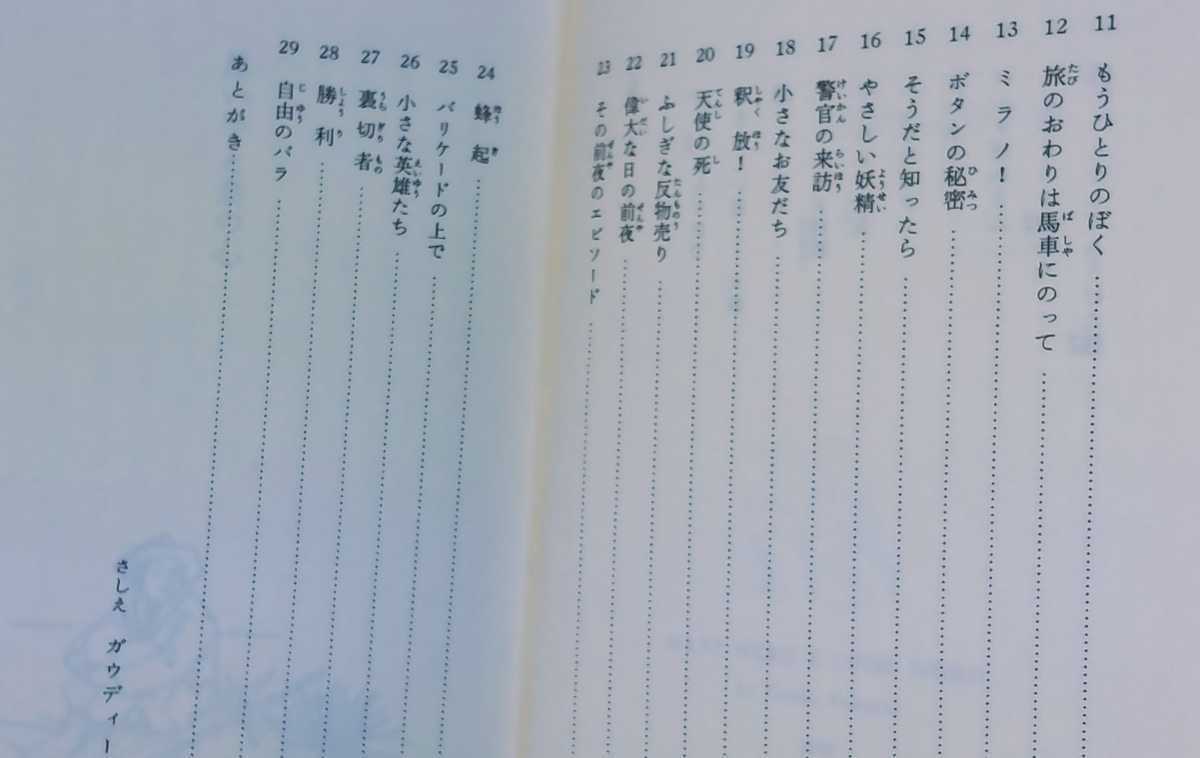 11 もうひとりのぼく
12 旅のおわりは馬車にのって
13 ミラノ!
14 ボタンの秘密
15 そうだと知ったら
16 やさしい妖精
17 警官の来訪
18 小さなお友だち
19 釈放!
20 天使の死
21 ふしぎな反物売り
22 偉大な日の前夜
23 その前夜のエピソード
24 蜂起
25 バリケードの上で
26 小さな英雄たち
27 裏切者
28 勝利
29 自由のバラ
あとがき
さしえ ガウディー